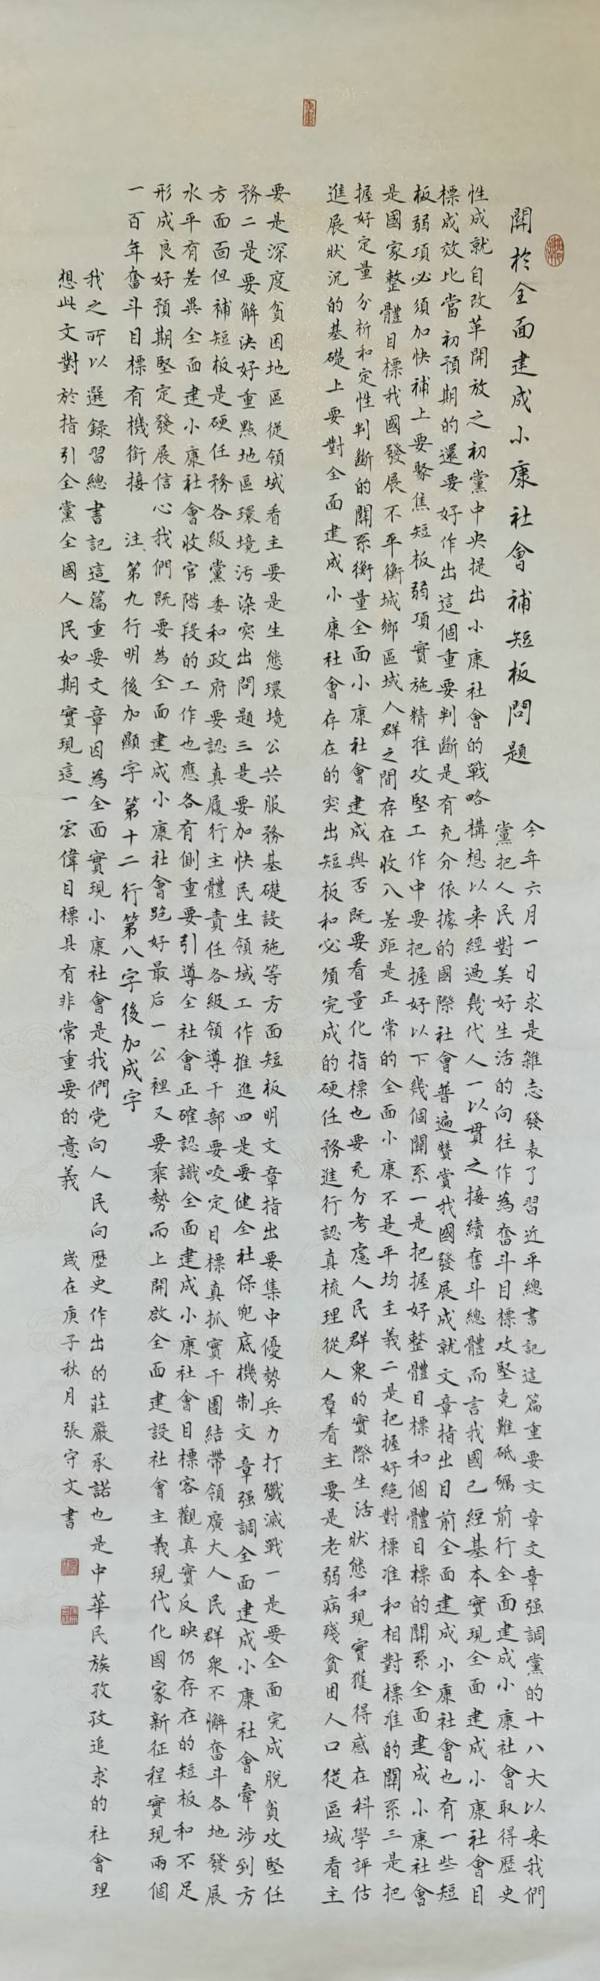 關於全面建成小康社會補短板問題
今年六月一日求是雜志發表了習近平總書記這篇重要文章文章强調黨的十八大以來我們
黨把人民對美好生活的向往作為奮斗目標攻堅克難砥礪前行全面建成小康社會取得歷史
性成就自改革開放之初黨中央提出小康社會的戰略構想以来經過幾代人一以貫之接續奮斗總體而言我國已經基本實現全面建成小康社會目
標成效比當初預期的還要好作出這個重要判斷是有充分依據的國際社會普遍贊賞我國發展成就文章指出目前全面建成小康社會也有一些短
板弱項必须加快補上要聚焦短板弱項實施精准攻堅工作中要把握好以下幾個關系一是把握好整體目標和個體目標的關系全面建成小康社會
是國家整體目標我國發展不平衡城鄉區域人群之間存在收入差距是正常的全面小康不是平均主義二是把握好絶對標准和相對標准的關系三是把
握好定量分析和定性判斷的關系衡量全面小康社會建成與否既要看量化指標也要充分考慮人民群衆的實際生活狀態和現實獲得感在科學評估
進展狀況的基礎上要對全面建成小康社會存在的突出短板和必须完成的硬任務進行認真梳理從人羣看主要是老弱病殘貧困人口從區域看主
要是深度貧困地區從領域看主要是生態環境公共服務基礎設施等方面短板明文章指出要集中優勢兵力打殲滅戰一是要全面完成脱貧攻堅任
務二是要解決好重點地區環境污染突出問題三是要加快民生領域工作推進四是要健全社保兜底機制文章强調全面建成小康社會牽涉到方
方面面但補短板是硬任務各級黨委和政府要認真履行主體責任各級領導干部要咬定目標真抓實干團結帶領廣大人民群衆不懈奮斗各地發展
水平有差異全面建小康社會收官階段的工作也應各有側重要引導全社會正確認識全面建成小康社會目標客觀真實反映仍存在的短板和不足
形成良好預期堅定發展信心我們既要為全面建成小康社會跑好最后一公裡又要乘勢而上開啟全面建設社會主義現代化國家新征程實現兩個
一百年奮斗目標有機銜接 注 第九行明後加顯字 第十二行第八字後加成字
我之所以選錄習總書記這篇重要文章因為全面實現小康社會是我們党向人民向歷史作出的莊嚴承諾也是中華民族孜孜追求的社會理
想此文對於指引全黨全國人民如期實現這一宏偉目標具有非常重要的意義 歲在庚子秋月張守文書